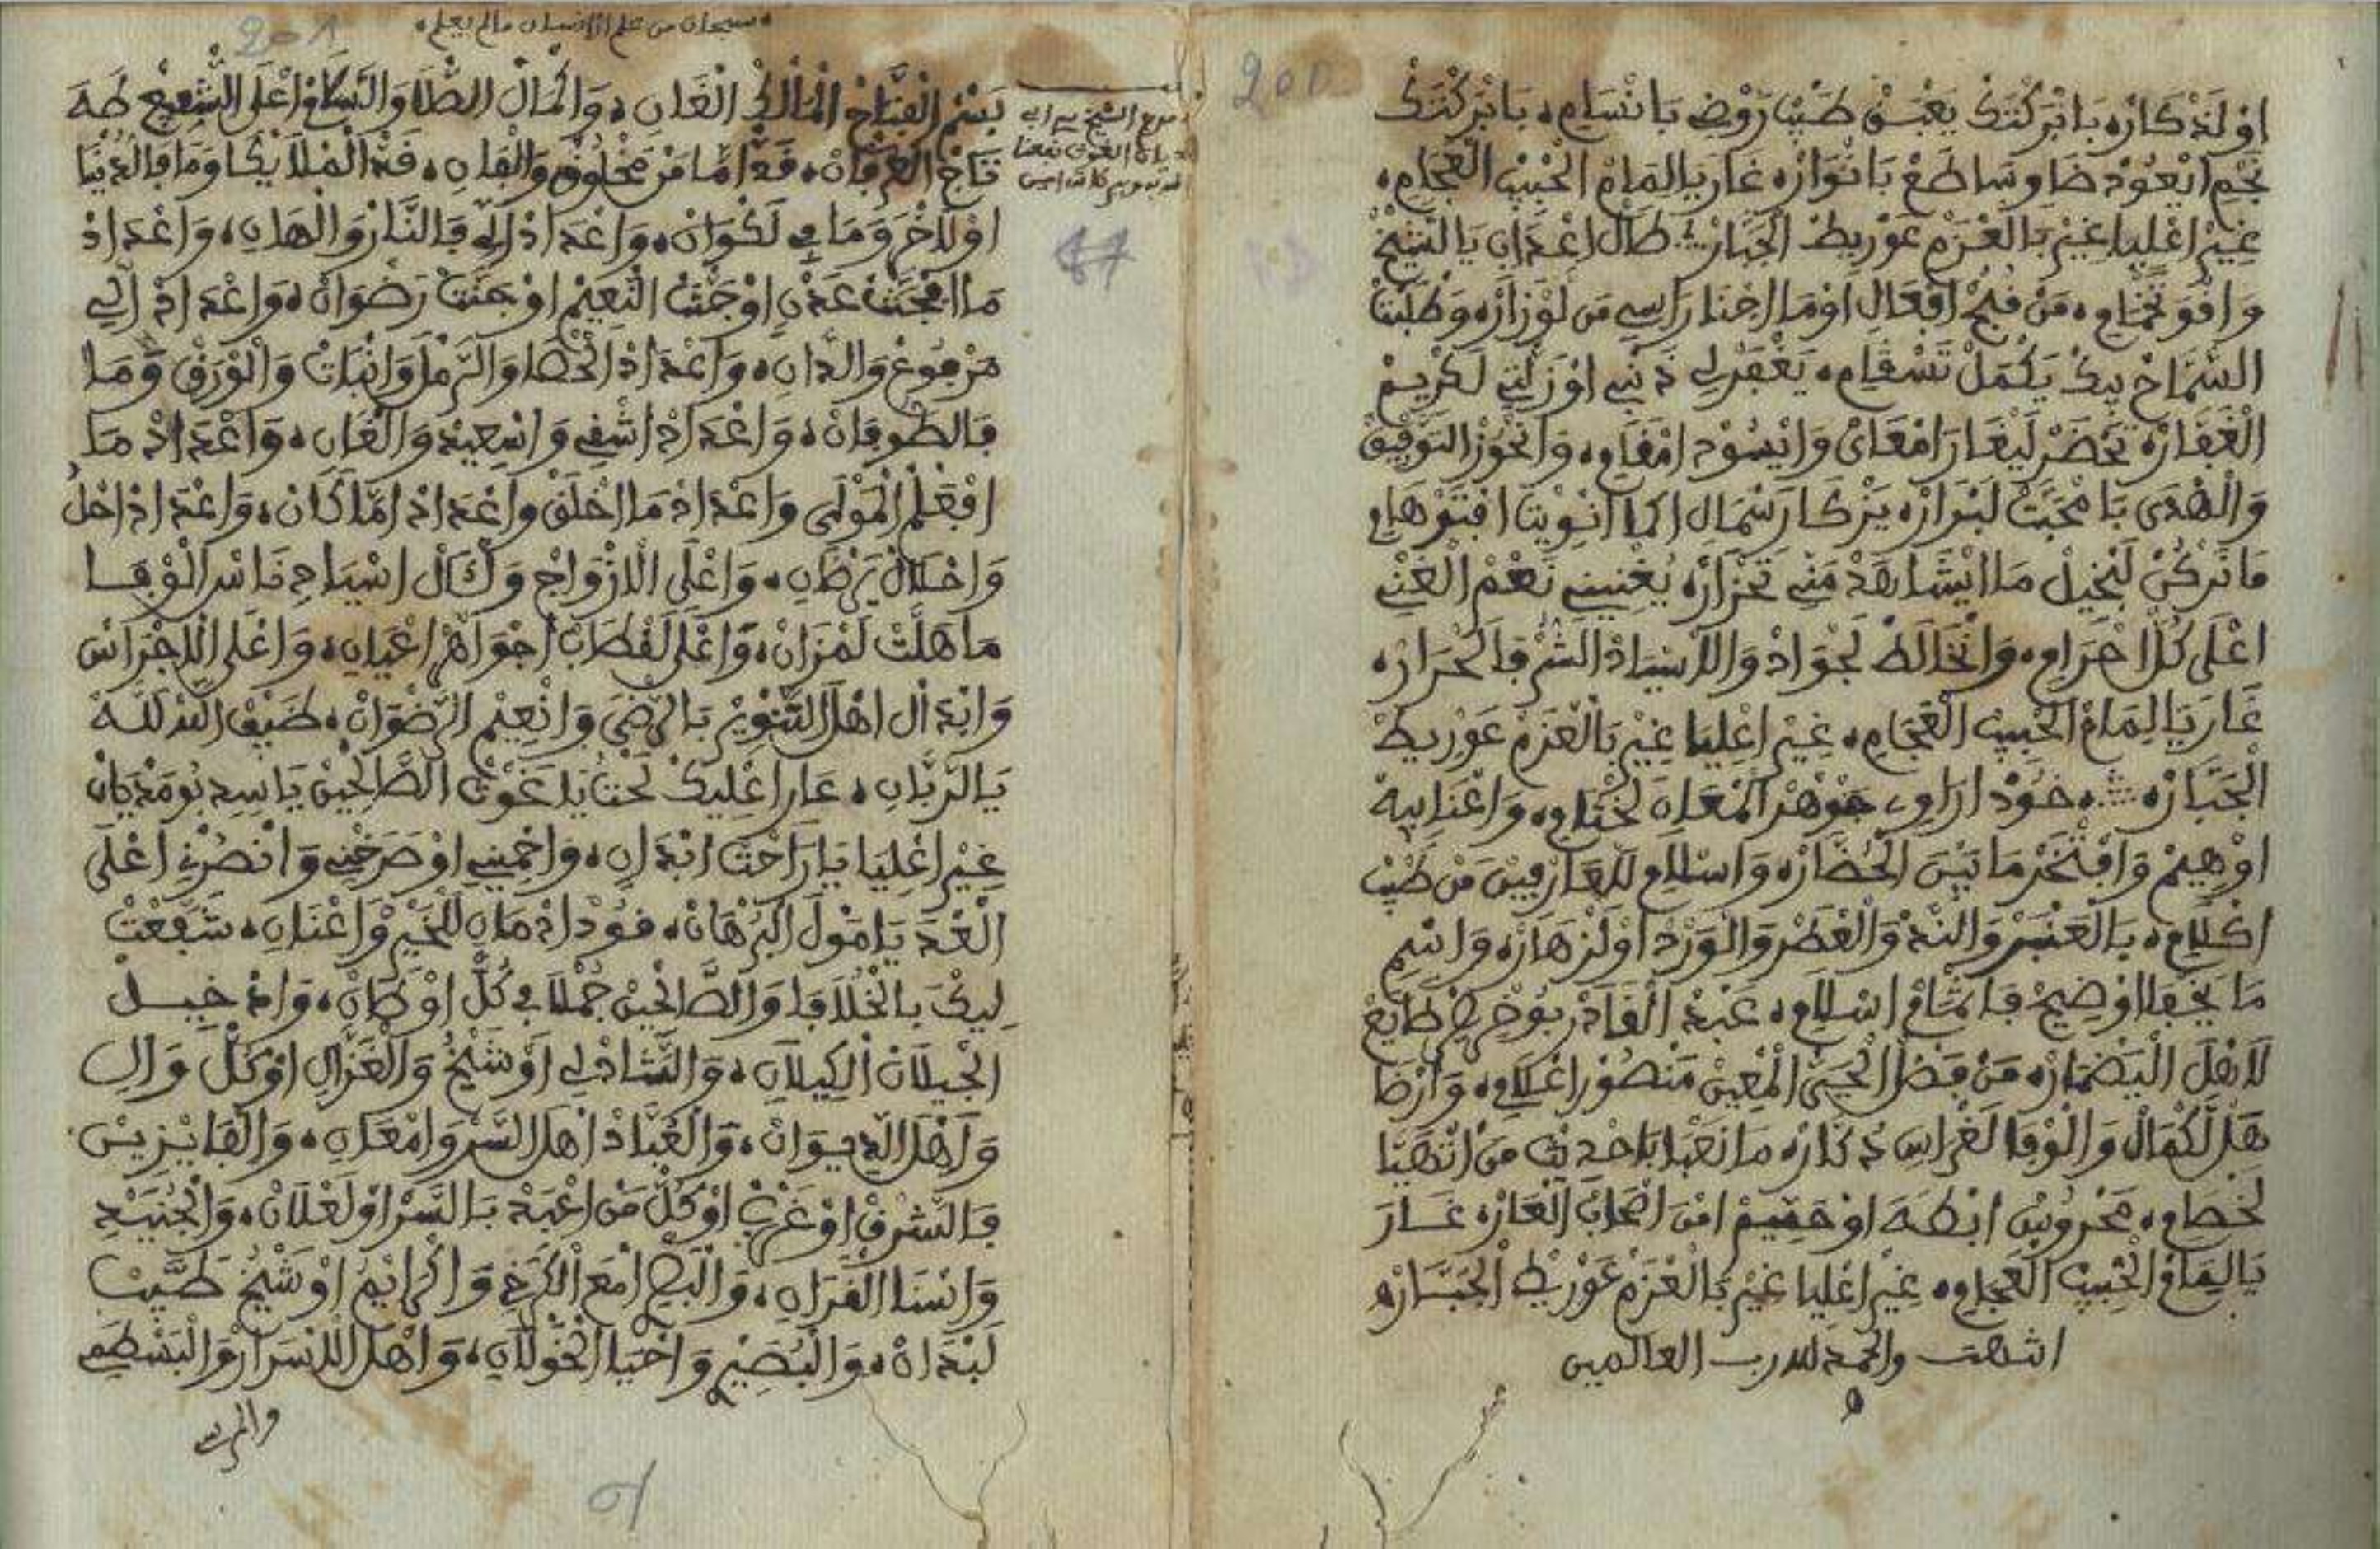 200
اوْلَذْكَارْ، بَابْرَكْتَكْ يَعْبَقْ طَيْبْ رَوْضِ بَانْسَامِ، بَابْرَكْتَكْ
نَجْمِ ايْعُودْ ضَاوِ سَاطَعْ بَانْوَارْ، غَارَ يَالِمَامْ الْحْبِيبْ الْعْجَامِ،
غِيرْ اعْلِيَا غِيرْ بَالْعَزْمْ عَوْرِيطْ الْجَبَّارْ، طَالْ اعْدَابِ يَا الشِّيخْ
وَاقْوَ تَخْمَامِ، مَنْ قُبْحْ افْعَالِ اوْمَا اجْنَا رَاسِي مَن لَوْزَارْ، وَطْلَبْتْ
السَّمَاحْ بِيكْ يَكْمَلْ تَسْقَامِ، يَغْفَرْلِي ذَنْبِي اوْزَلْتِي لَكْرِيمْ
الْغَفَّارْ، تَحْضَرْ لِيغَارَ امْعَايَ وَايْسُودْ امْقَامِ، وَانْحُوزْ التَّوْفِيقْ
وَالْهْدَى بَامْحَبَّتْ لَبْرَارْ، يَزْكَا رَسْمَالِ اكْمَا انْوِيتْ افْتَوْهَامِ
مَا نَرْكُنْ لَبْخِيلْ مَا انْشَاهَدْ مَنِّي تَحْزَارْ، يُغْنِينِي نَعْمْ الْغْنِي
اعْلَى كُلْ احْرَامِ، وَانْخَالَطْ لَجْوَادْ وَالَاسْيَادْ الشُّرْفَا لَحْرَارْ،
غَارَ يَا لِمَامْ الْحْبِيبْ الْعْجَامِ، غِيرْ اعْلِيَا غِيرْ بَالْعَزْمْ عَوْرِيطْ
الْجَبَّارْ، خُودْ ارَاوِي جَوْهَرْ الْمْعَانِ لَخْتَامِ، وَاعْنَا بِيهْ
اوْهِيمْ وَافْتْخَرْ مَا بَيْنَ الْحُضَّارْ، وَاسْلَامِ لَلْعَارْفِينْ مَنْ طَيْبْ
اكْلَامِ، بَالْعَنْبَرْ وَالنَّدْ وَالْعْطَرْ وَالْوَرْدْ اوْلَزْهَارْ، وَاسْمِ
مَا يَخْفَا اوْضِيحْ فَاتْمَامْ اسْلَامِ، عَبْدْ الْقَادَرْ بُوخْرِيصْ طَايَعْ
لَاهْلْ الْبَضْمَارْ، مَنْ فَضْلْ الْحَيّ الْمْعِينْ مَنْصُورْ اعْلَامِ، وَارْضَا
هَلْ لَكْمَالْ وَالْوْفَا لَغْرَاسِي تَذْكَارْ، مَا نَعْبَا بَاحْدِيثْ مَنْ اتْهَيَّا
لَخْصَامِ، مَحْرُوسْ ابْطَهَ اوْحَيّمْ امْنَ اصْحَابْ الْعَارْ، غَارَ
يَالِمَامْ الْحْبِيبْ الْعْجَامِ، غِيرْ اعْلِيَا غِيرْ بَالْعَزْمْ عَوْرِيطْ الْجَبَّارْ،
انتهت والحمد لله رب العالمين
سبحان من علم الانسان مالم يعلم،
201
بَسْمْ الْفَتَّاحْ الْمَالَكْ الْغَانِي، وَاكْمَالْ الصّْلَا وَالسَّلَامْ اعْلَى الشّْفِيعْ طَهَ
تَاجْ الْعَرْفَانْ، قَدْ امَّا مَنْ مَخْلُوقْ وَالْفَانِ، قَدْ الْمْلَايْكَا وَمَا فَالدُّنْيَا
اوْلَاخْرَ وَمَا فِي لَكْوَانْ، وَاعْدَادْ الِّي فَالنَّارْ وَالْهَانِ، وَاعْدَادْ
مَا افْجَنَّتْ عَدْنِ اوْجَنَّتْ النّْعِيمْ اوْجَنَّتْ رَضْوَانْ، وَاعْدَادْ الِّي
مَرْفُوعْ وَالدَّانِ، وَاعْدَادْ الْحْصَا وَالرَّمْلْ وَانْبَاتْ وَالْوْرَقْ وَمَا
فَالطُّوفَانْ، وَاعْدَادْ اشْقِي وَاسْعِيدْ وَالْعَانِ، وَاعْدَادْ مَا
افْعَلْمْ الْمَوْلَى وَاعْدَادْ مَا اخْلَقْ وَاعْدَادْ امَّا كَانْ، وَاعْدَادْ
وَاعْلَى الَازْوَاجْ وَالْآلْ اسْيَادِ نَاسْ الْوْفَا
مَا هَلَّتْ لَمْزَانْ، وَاعْلَى لَقْطَابْ اجْوَاهْرْ اعْيَانِ، وَاعْلَى الَاجْرَاسْ
وَابْدَالْ اهْلْ التَّنْوِيرْ بَالرّْضَى وَانْعِيمْ الرَّضْوَانْ، ضَيْفْ اللهْ للهْ
يَالرَّبَّانِ، عَارَ اعْلِيكْ نَحْتْ يَا غَوْثْ الصَّالْحِينْ يَاسِيدِ بُومَدْيَانْ
غِيرْ اعْلِيَا يَا رَاحْتْ ابْدَانِ، وَاحْمِينِي اوْصَرْخْنِي وَانْصُرْنِ اعْلَى
الْعْدَ يَا مُولَ الْبُرْهَانْ، قُودْ ازْمَانِ لَلْخَيْرْ وَاعْنَانِ، شَفَّعْتْ
لِيكْ بَالْخُلَافَا وَالصَّالْحِينْ جُمْلَا فِي كُلْ اوْطَانْ، وَادْخِيلْ
الْجِيلَانْ الْكِيلَانِ، وَالشَّادْلِي اوْشَيْخُ وَالْغَزَالِ اوْكُلْ وَالِ
وَاهْلْ الدِّيوَانْ، وَالْعُبَّادْ اهْلْ السَّرْ وَامْعَانِ، وَالْفَايْزِينْ
فَالشَّرْقْ اوْغَرْبْ اوْكُلْ مَنْ اعْبَدْ بَالسَّرْ اوْلَعْلَانْ، وَالْجُنَيْدِ
وَانْسَا الْقَرَانِ، امْعَ الْكَرْخِي اوْشَيْخُ طَيَّبْ
لَبْدَانْ، وَالْبُصَيْرِ وَاحْيَا الْخَوْلَانِ، وَاهْلْ الَاسْرَارْ وَالْبَسْطَمِي